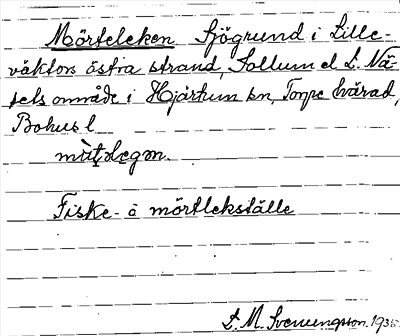 Mörteleken Sjögrund i Lille-
väktors östra strand, Sollum el L. Nä-
sets område i Hjärtum sn, Torpe härad,
Bohus l
Fiske- o mörtlekställe
S. M. Svenungsson. 1935